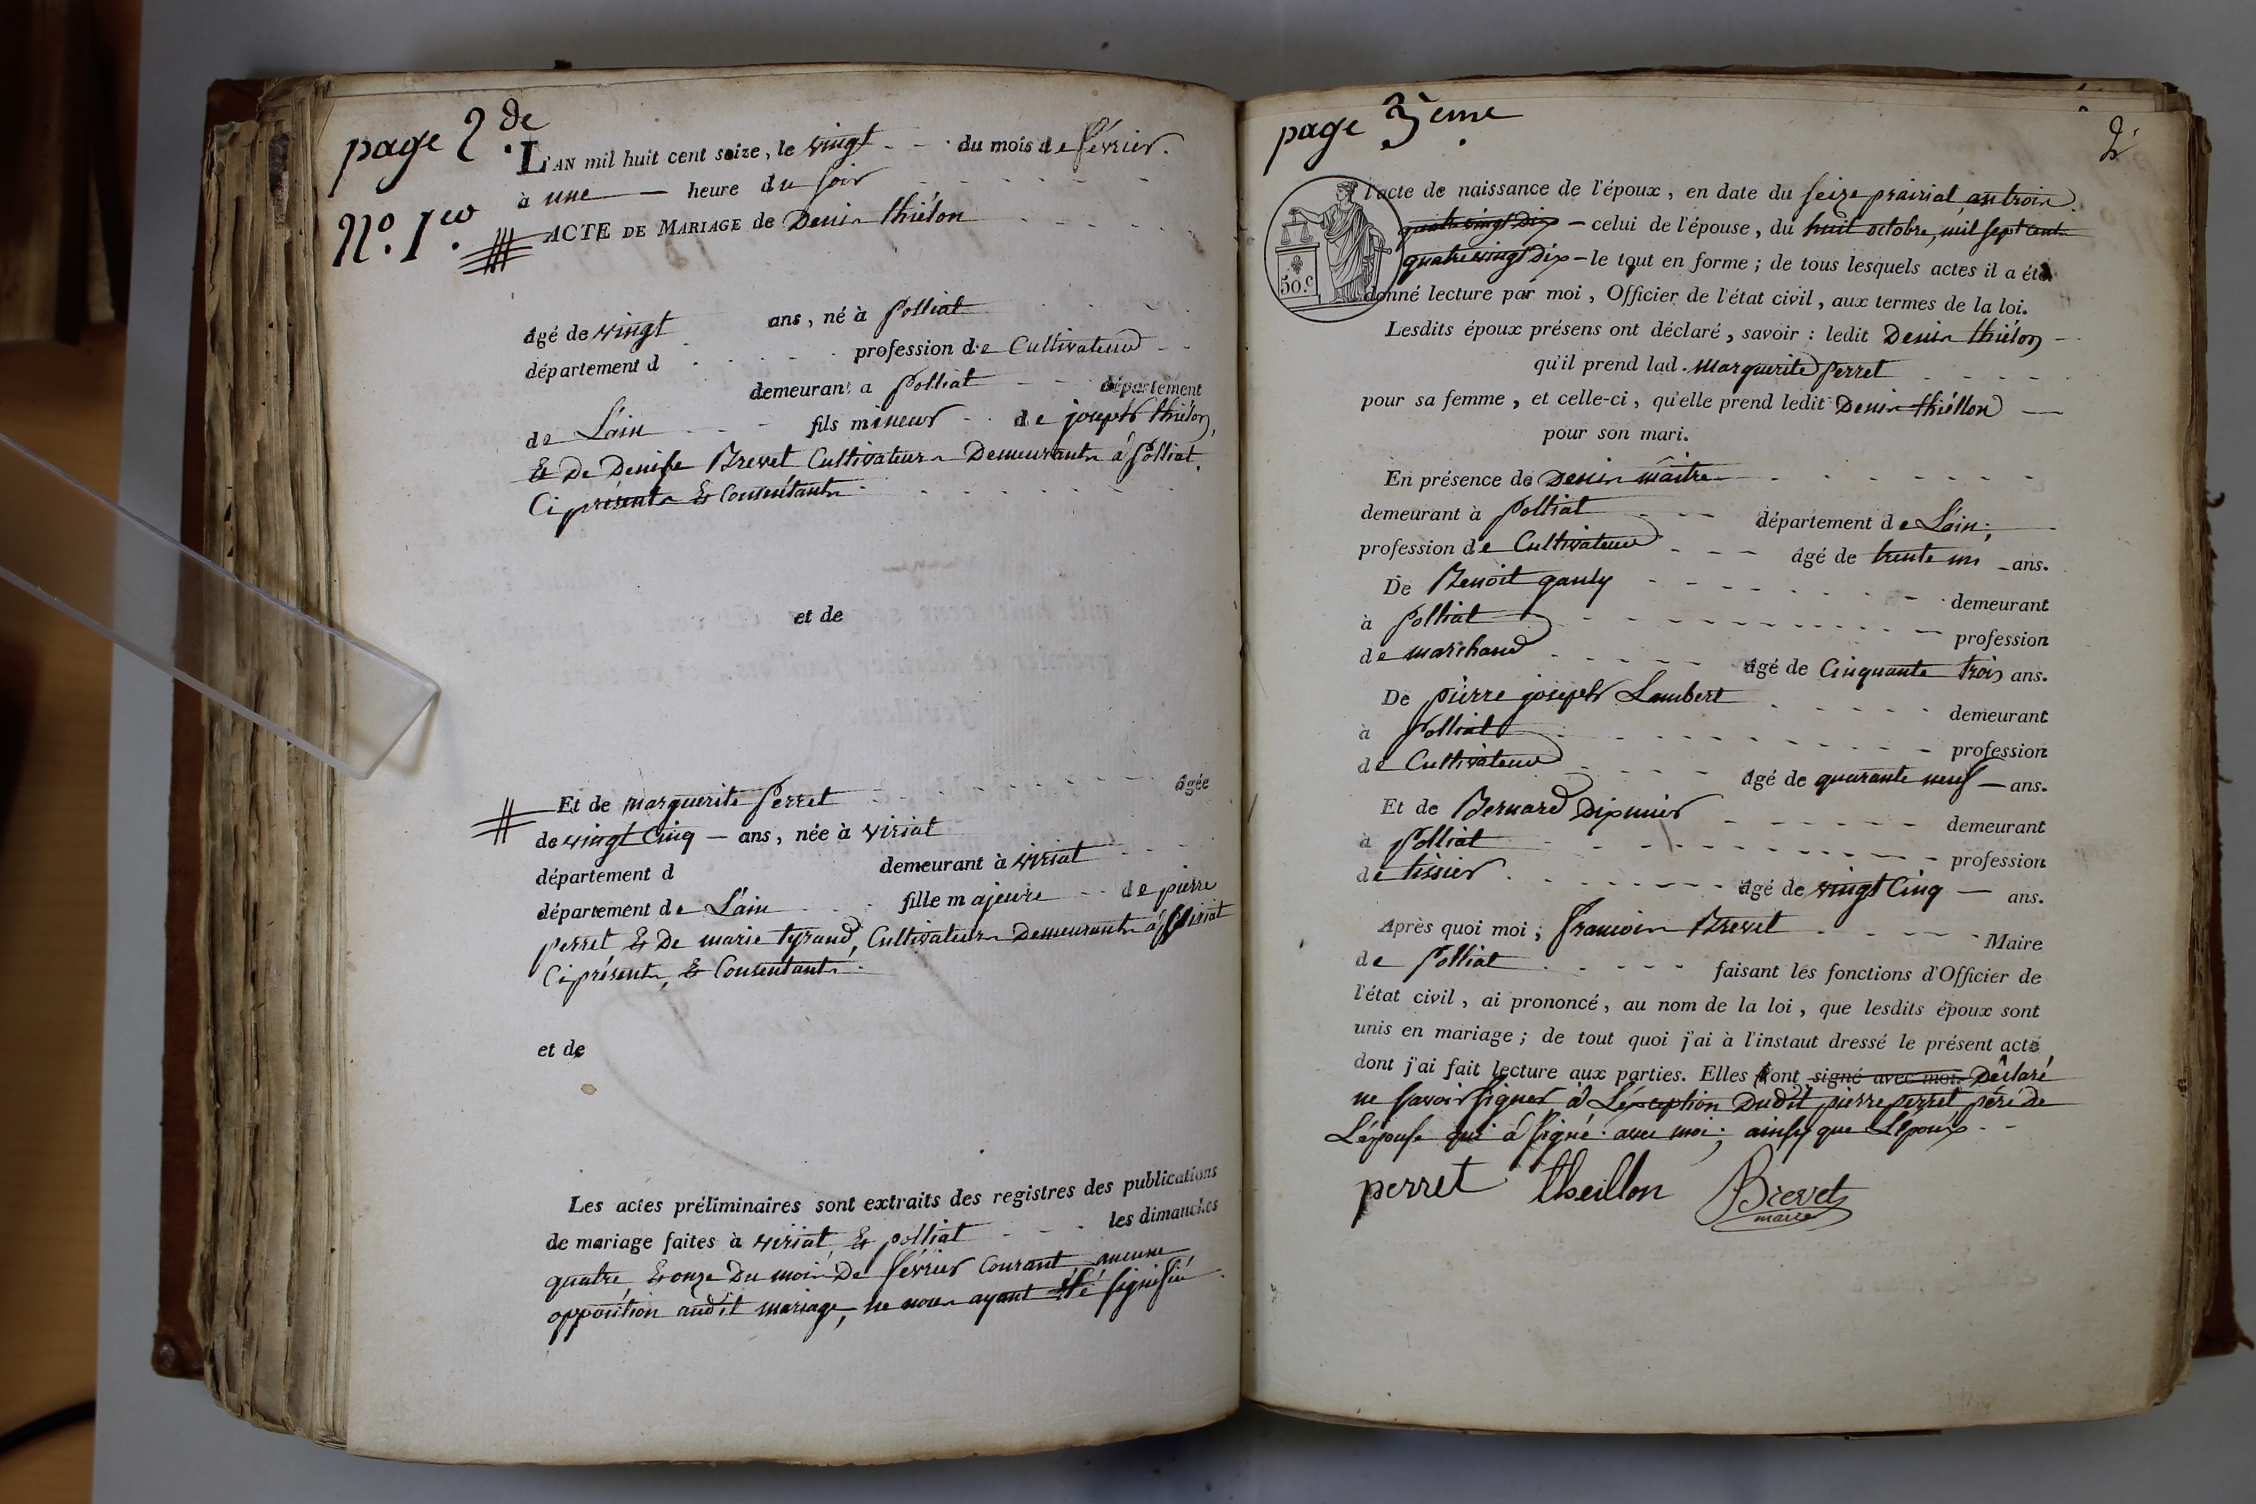 page 2de
L'AN mil huit cent seize, le vingt du mois de février.
à une heure du soir
No. 1er
ACTE DE MARIAGE de Denis thiélon
âgé de vingt ans, né à Polliat
département d profession de Cultivateur
demeurant a Polliat département
de L'ain fils mineur de joseph thiélon,
Et De Denise Brevet Cultivateurs Demeurants á Polliat.
Ci présents Et Consentants.
et de
Et de marguerite Perret âgée
de vingt Cinq ans, née à viriat
département d demeurant à viriat
département de L'ain fille majeure de pierre
perret Et De marie tyrand, Cultivateurs Demeurants á viriat
Ci présents, Et Consentants.
et de
Les actes préliminaires sont extraits des registres des publications
de mariage faites à viriat, Et polliat les dimanches
quatre, Et onze Du mois De février Courant aucune
opposition audit mariage, ne nous ayant été signifié
page 3ème
2
l'acte de naissance de l'époux, en date du seize prairial, an trois.
quatre vingt Dix celui de l'épouse, du huit octobre, mil sept cent
50.c
quatre vingt Dix le tout en forme; de tous lesquels actes il a été
donné lecture par moi, Officier de l'état civil, aux termes de la loi.
Lesdits époux présens ont déclaré, savoir: ledit Denis thiélon
qu'il prend lad. Marguerite Perret
pour sa femme, et celle-ci, qu'elle prend ledit Denis thiéllon
pour son mari.
En présence de Denis maitre
demeurant à Polliat département de L'ain;
profession de Cultivateur âgé de trente un ans.
De Benoit gauly demeurant
à Polliat profession
de marchand âgé de Cinquante trois ans.
De pierre joseph Lambert demeurant
à Polliat profession
de Cultivateur âgé de quarante neuf ans.
Et de Bernard Dipmier demeurant
à Polliat profession
de tissier âgé de vingt Cinq ans.
Après quoi moi, francois Brevet Maire
de Polliat faisant les fonctions d'Officier de
l'état civil, ai prononcé, au nom de la loi, que lesdits époux sont
unis en mariage; de tout quoi j'ai à l'instaut dressé le présent acte
dont j'ai fait lecture aux parties. Elles ont signé avec moi. Déclaré
ne savoir signer á L'éxception Dudit pierre perret père de
L'épouse qui á signé avec moi; ainsy que L'époux.
perret theillon Brevet
maire